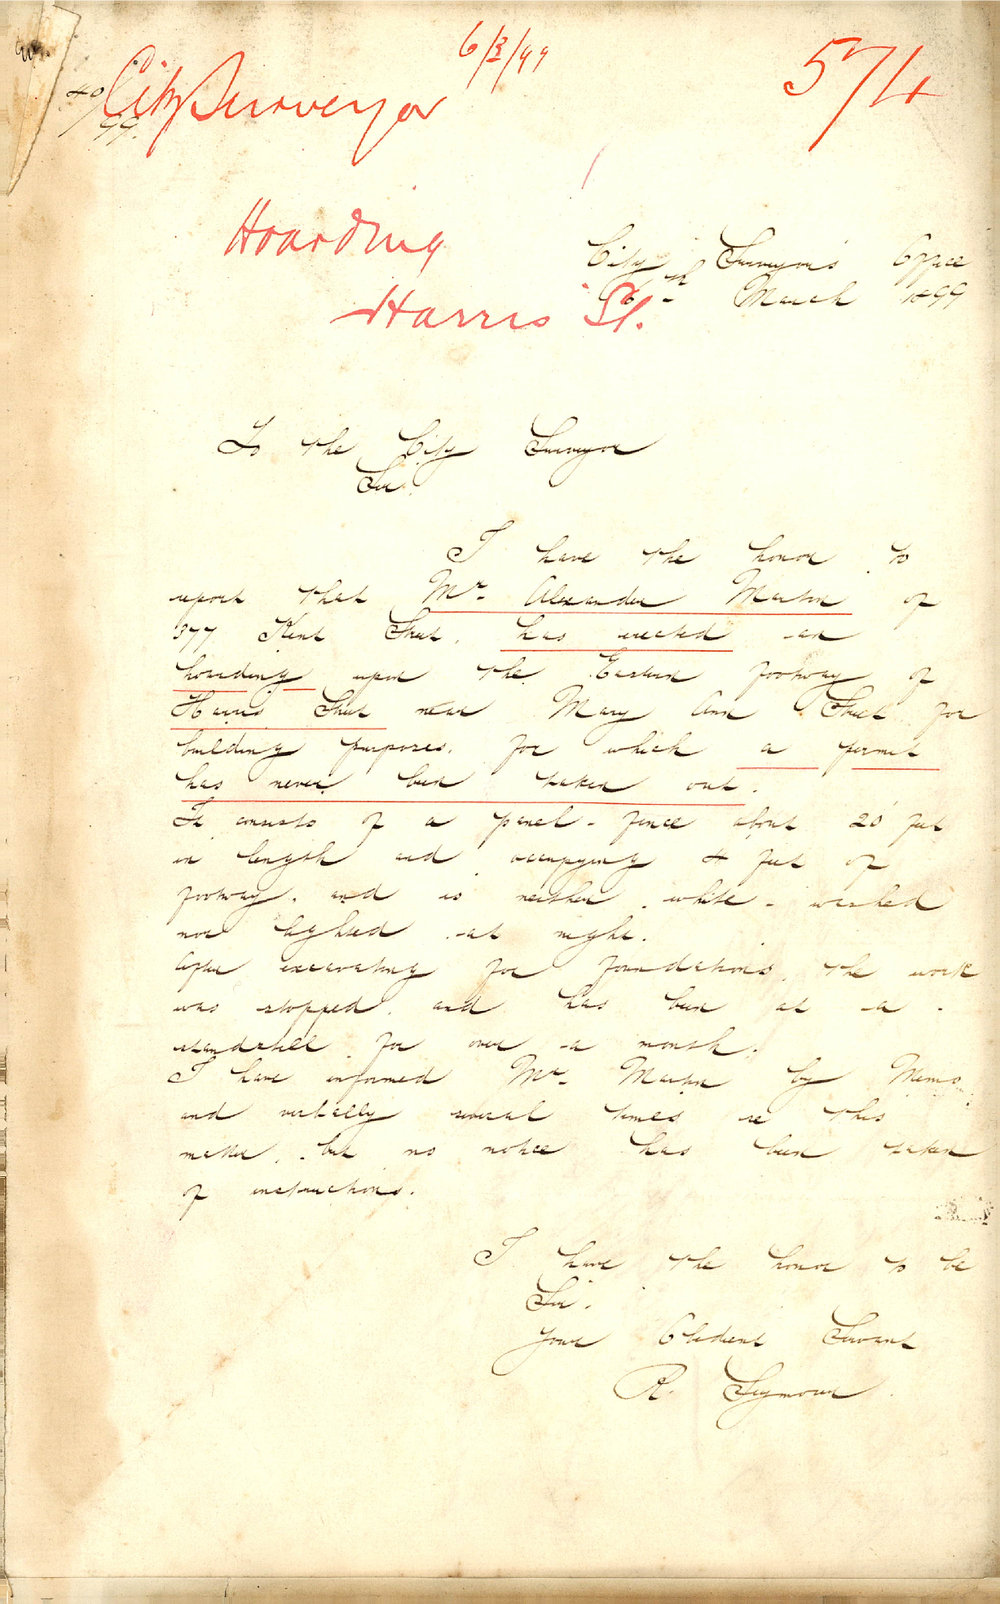 6/3/99
574
City Surveyor
40/99.
Hoarding
Harris St.
City Surveyor's Office
6th March 1899
To the City Surveyor
Sir.
I have the honor to
report that Mr. Alexander Marton of
377 Kent Street. has erected an
hoarding upon the Eastern footway of
Harris Street near Mary Ann Street for
building purposes. for which a permit
has never been taken out.
It consists of a panel-fence about 20 feet
in length and occupying 4 feet of
footway. and is neither white-washed
nor lighted at night.
After excavating for foundations, the work
was stopped and has been at a -
standstill for over a month.
I have informed Mr. Marton by Memo
and verbally several times re this
matter, but no notice has been taken
of instructions.
I have the honor to be
Sir.
Your Obedient Servant
R. Seymour.